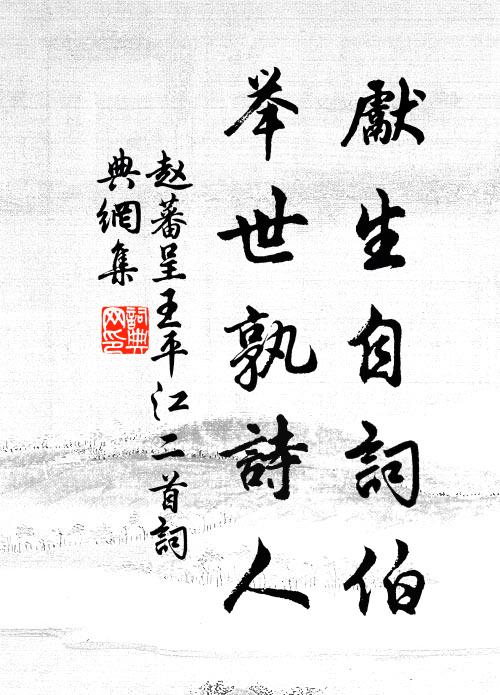 獻生自詞伯
举世孰詩人
赵蕃呈王平江二首詞
典網集
詞典
网印